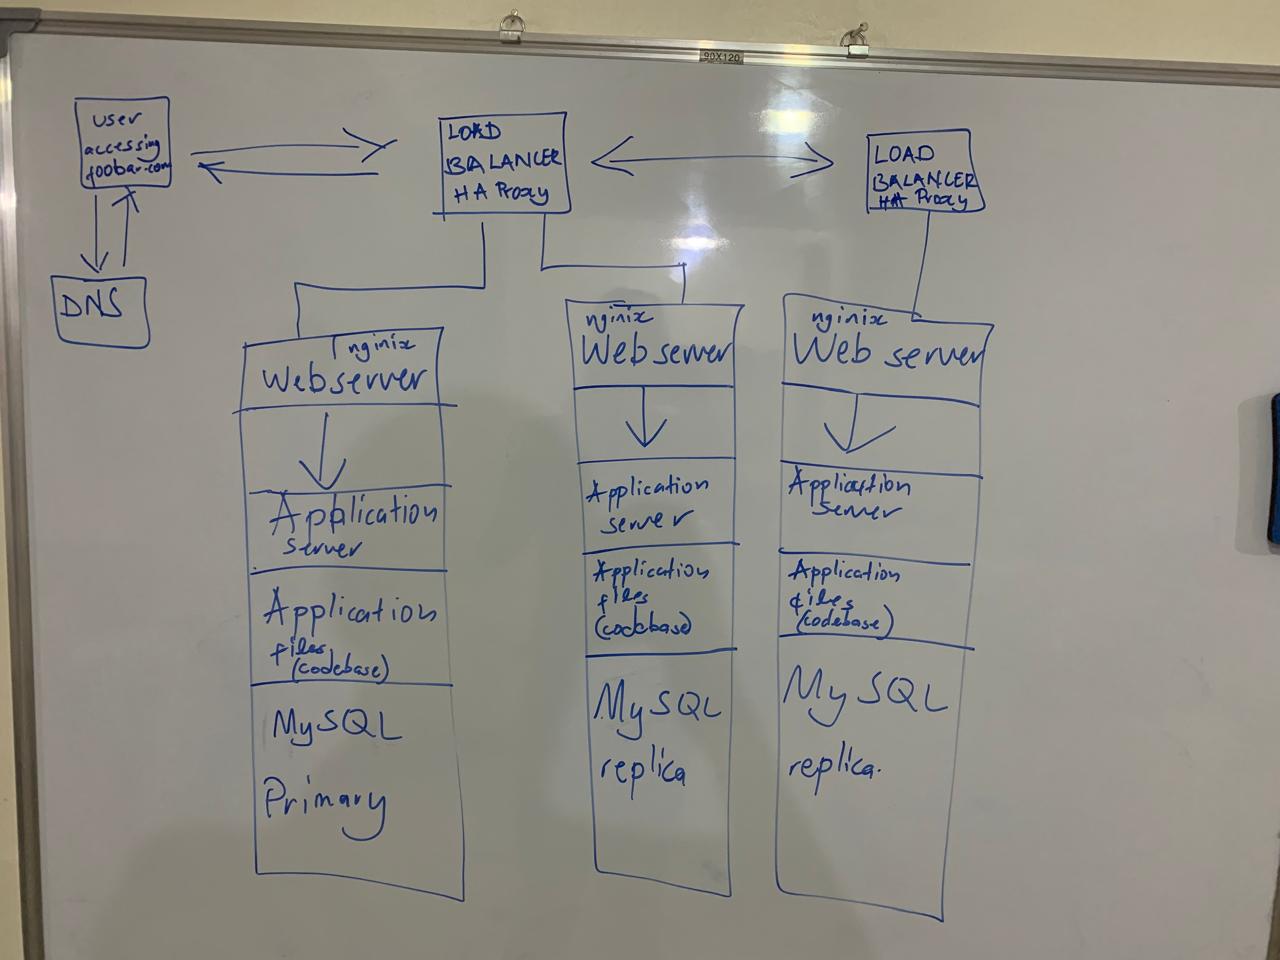 90X120
user
accessing
foobar.com
DNS
LOAD
BALANCER
HA Proxy
LOAD
BALANCER
HA Proxy
nginix
Webserver
Application
server
Application
files
(codebase)
MySQL
Primary
nginix
Web server
Application
server
Application
files
(codebase)
MySQL
replica
nginix
Web server
Application
server
Application
files
(codebase)
MySQL
replica.